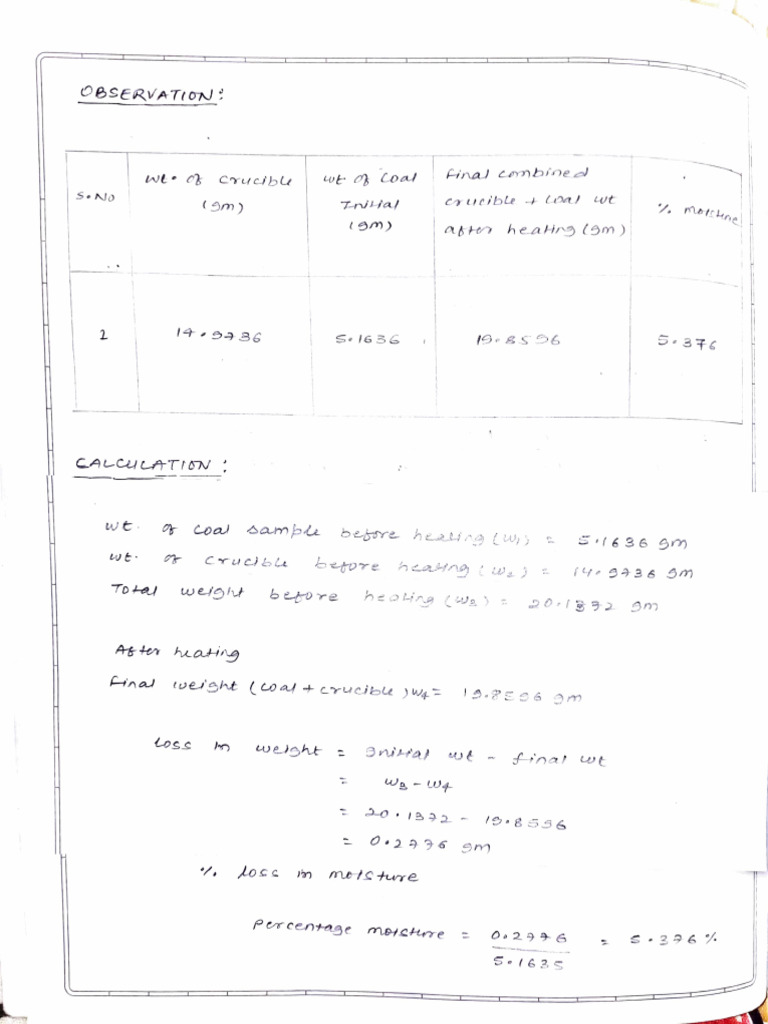 OBSERVATION:
S.No
wt. of crucible
(gm)
wt of coal
Initial
(gm)
final combined
crucible + coal wt
after heating (gm)
% moisture
1
14.9736
5.1636
19.8596
5.376
CALCULATION:
wt. of coal sample before heating (w1) = 5.1636 gm
wt. of crucible before heating (w2) = 14.9736 gm
Total weight before heating (w3) = 20.1372 gm
After heating
final weight (coal + crucible) w4 = 19.8596 gm
loss in weight = Initial wt - final wt
= w3 - w4
= 20.1372 - 19.8596
= 0.2776 gm
% loss in moisture
percentage moisture = 0.2776 = 5.376 %
5.1635